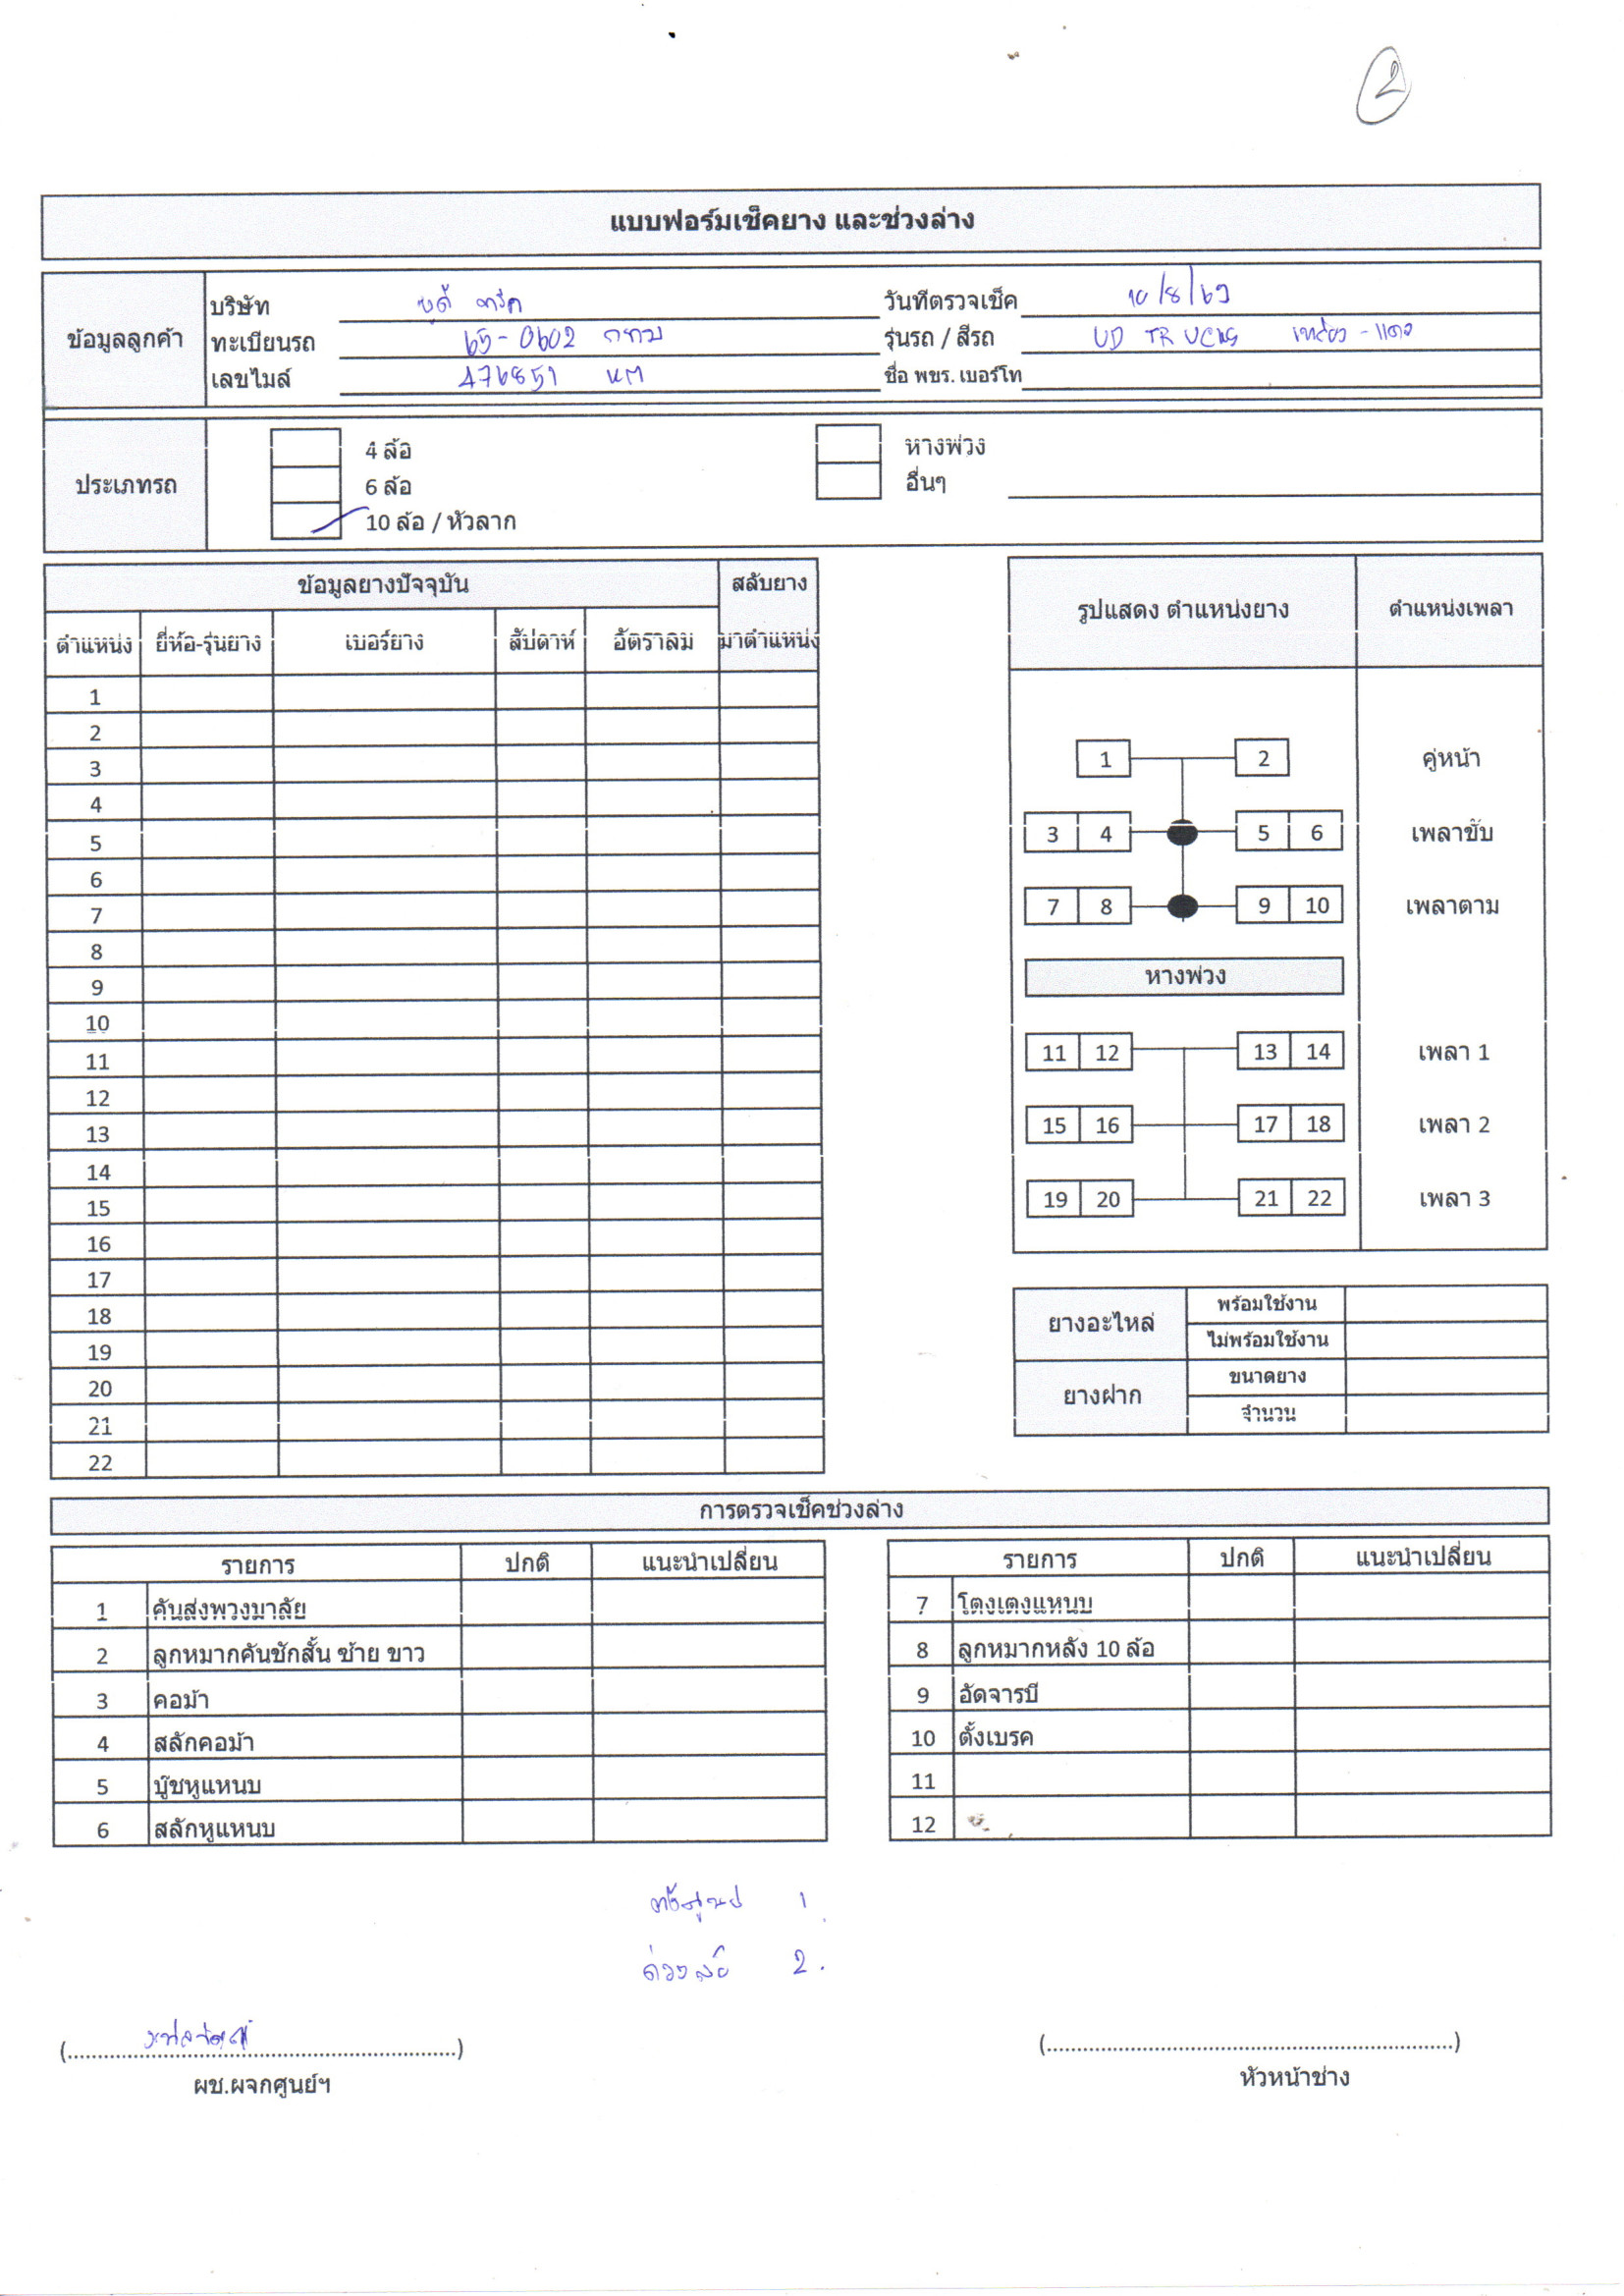 2
แบบฟอร์มเช็คยาง และช่วงล่าง
ข้อมูลลูกค้า
บริษัท ยูดี ทรัค วันที่ตรวจเช็ค 10/8/69
ทะเบียนรถ 65-0602 กทม รุ่นรถ / สีรถ UD TRUCKS เหลือง-แดง
เลขไมล์ 476851 KM ชื่อ พขร. เบอร์โท
ประเภทรถ
4 ล้อ หางพ่วง
6 ล้อ อื่นๆ
10 ล้อ / หัวลาก
ข้อมูลยางปัจจุบัน สลับยาง
ตำแหน่ง ยี่ห้อ-รุ่นยาง เบอร์ยาง สัปดาห์ อัตราลม มาตำแหน่ง
1
2
3
4
5
6
7
8
9
10
11
12
13
14
15
16
17
18
19
20
21
22
รูปแสดง ตำแหน่งยาง ตำแหน่งเพลา
1 2 คู่หน้า
3 4 5 6 เพลาขับ
7 8 9 10 เพลาตาม
หางพ่วง
11 12 13 14 เพลา 1
15 16 17 18 เพลา 2
19 20 21 22 เพลา 3
ยางอะไหล่ พร้อมใช้งาน
ไม่พร้อมใช้งาน
ยางฝาก ขนาดยาง
จำนวน
การตรวจเช็คช่วงล่าง
รายการ ปกติ แนะนำเปลี่ยน
1 คันส่งพวงมาลัย
2 ลูกหมากคันชักสั้น ซ้าย ขาว
3 คอม้า
4 สลักคอม้า
5 บู๊ชหูแหนบ
6 สลักหูแหนบ
รายการ ปกติ แนะนำเปลี่ยน
7 โตงเตงแหนบ
8 ลูกหมากหลัง 10 ล้อ
9 อัดจารบี
10 ตั้งเบรค
11
12
ตั้งศูนย์ 1.
ถ่วงล้อ 2.
(..............................) (..............................)
ผช.ผจกศูนย์ฯ หัวหน้าช่าง